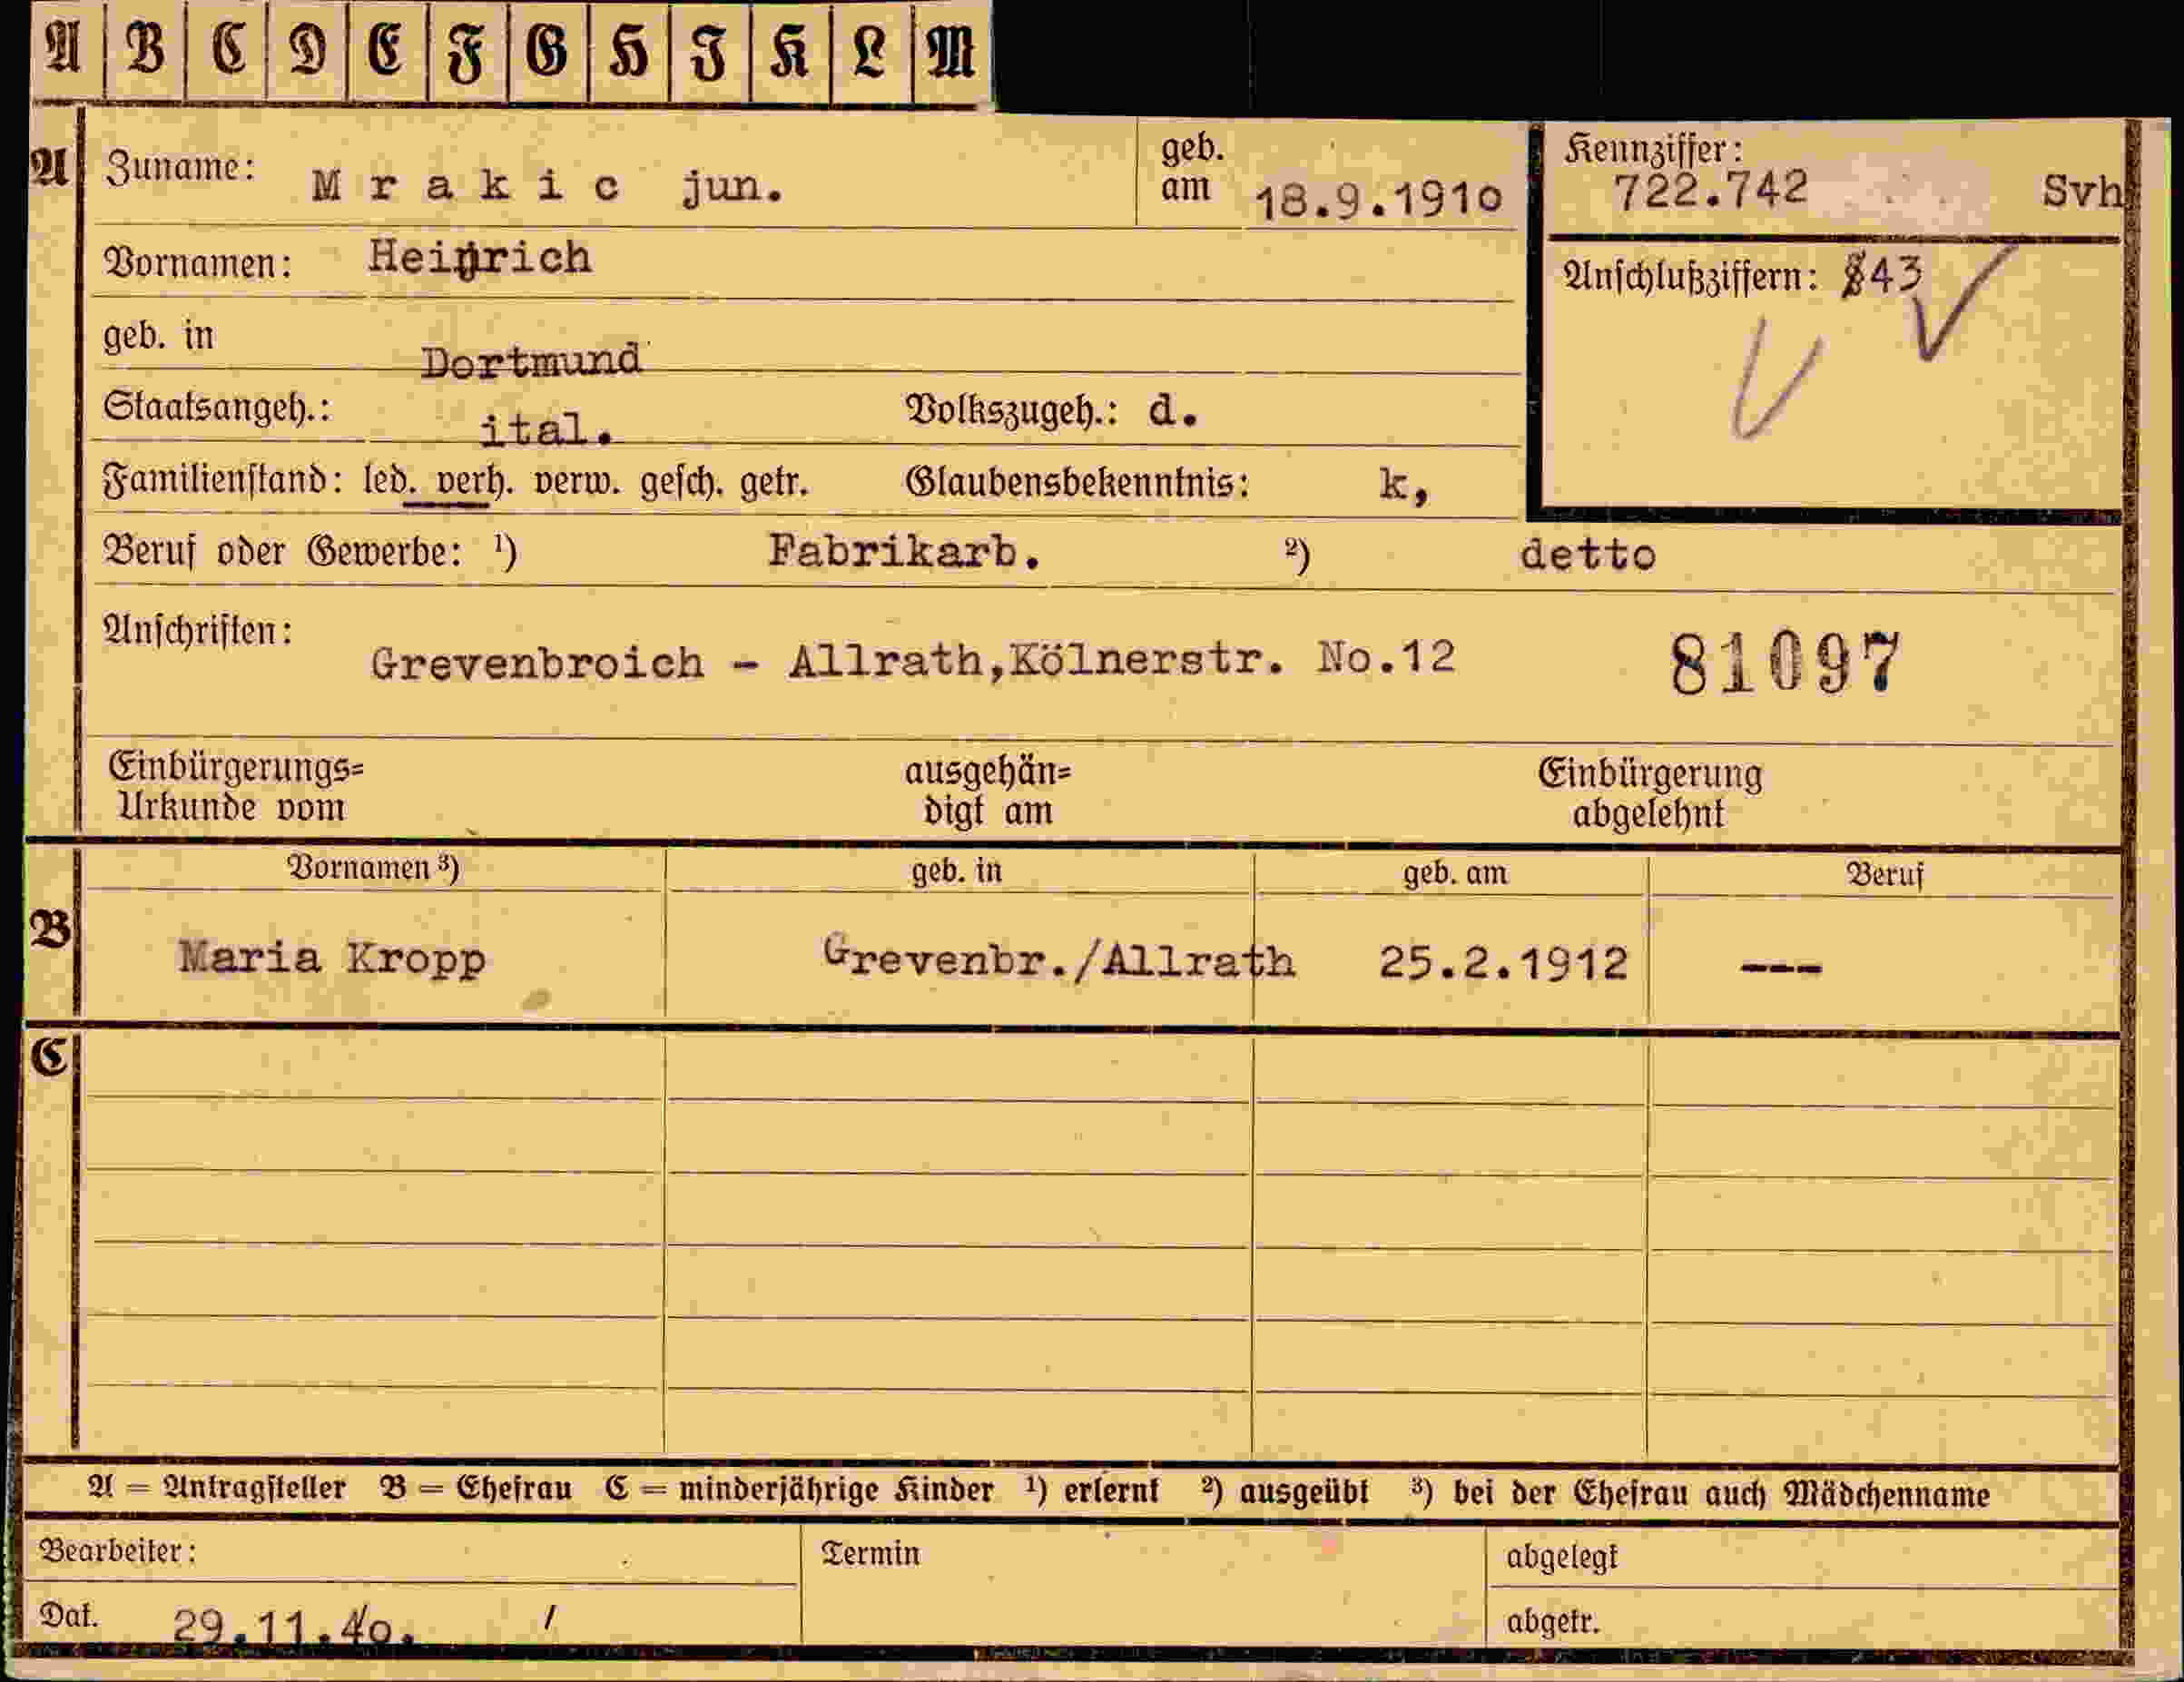 A B C D E F G H I K L M
A Zuname: Mrakic jun. geb. am 18.9.1910 Kennziffer: 722.742 Svh
Vornamen: Heinrich Anschlußziffern: 843
geb. in Dortmund
Staatsangeh.: ital. Volkszugeh.: d.
Familienstand: led. verh. verw. gesch. getr. Glaubensbekenntnis: k,
Beruf oder Gewerbe: ¹) Fabrikarb. ²) detto
Anschriften: Grevenbroich - Allrath,Kölnerstr. No.12 81097
Einbürgerungs= ausgehän= Einbürgerung
Urkunde vom digt am abgelehnt
Vornamen ³) geb. in geb. am Beruf
B Maria Kropp Grevenbr./Allrath 25.2.1912 ---
C
A = Antragsteller B = Ehefrau C = minderjährige Kinder ¹) erlernt ²) ausgeübt ³) bei der Ehefrau auch Mädchenname
Bearbeiter: Termin abgelegt
Dat. 29.11.40. / abgetr.